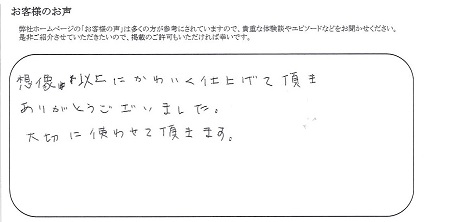 お客様のお声
弊社ホームページの「お客様の声」は多くの方が参考にされていますので、貴重な体験談やエピソードなどをお聞かせください。
是非ご紹介させていただきたいので、掲載のご許可もいただければ幸いです。
想像以上にかわいく仕上げて頂き
ありがとうございました。
大切に使わせて頂きます。